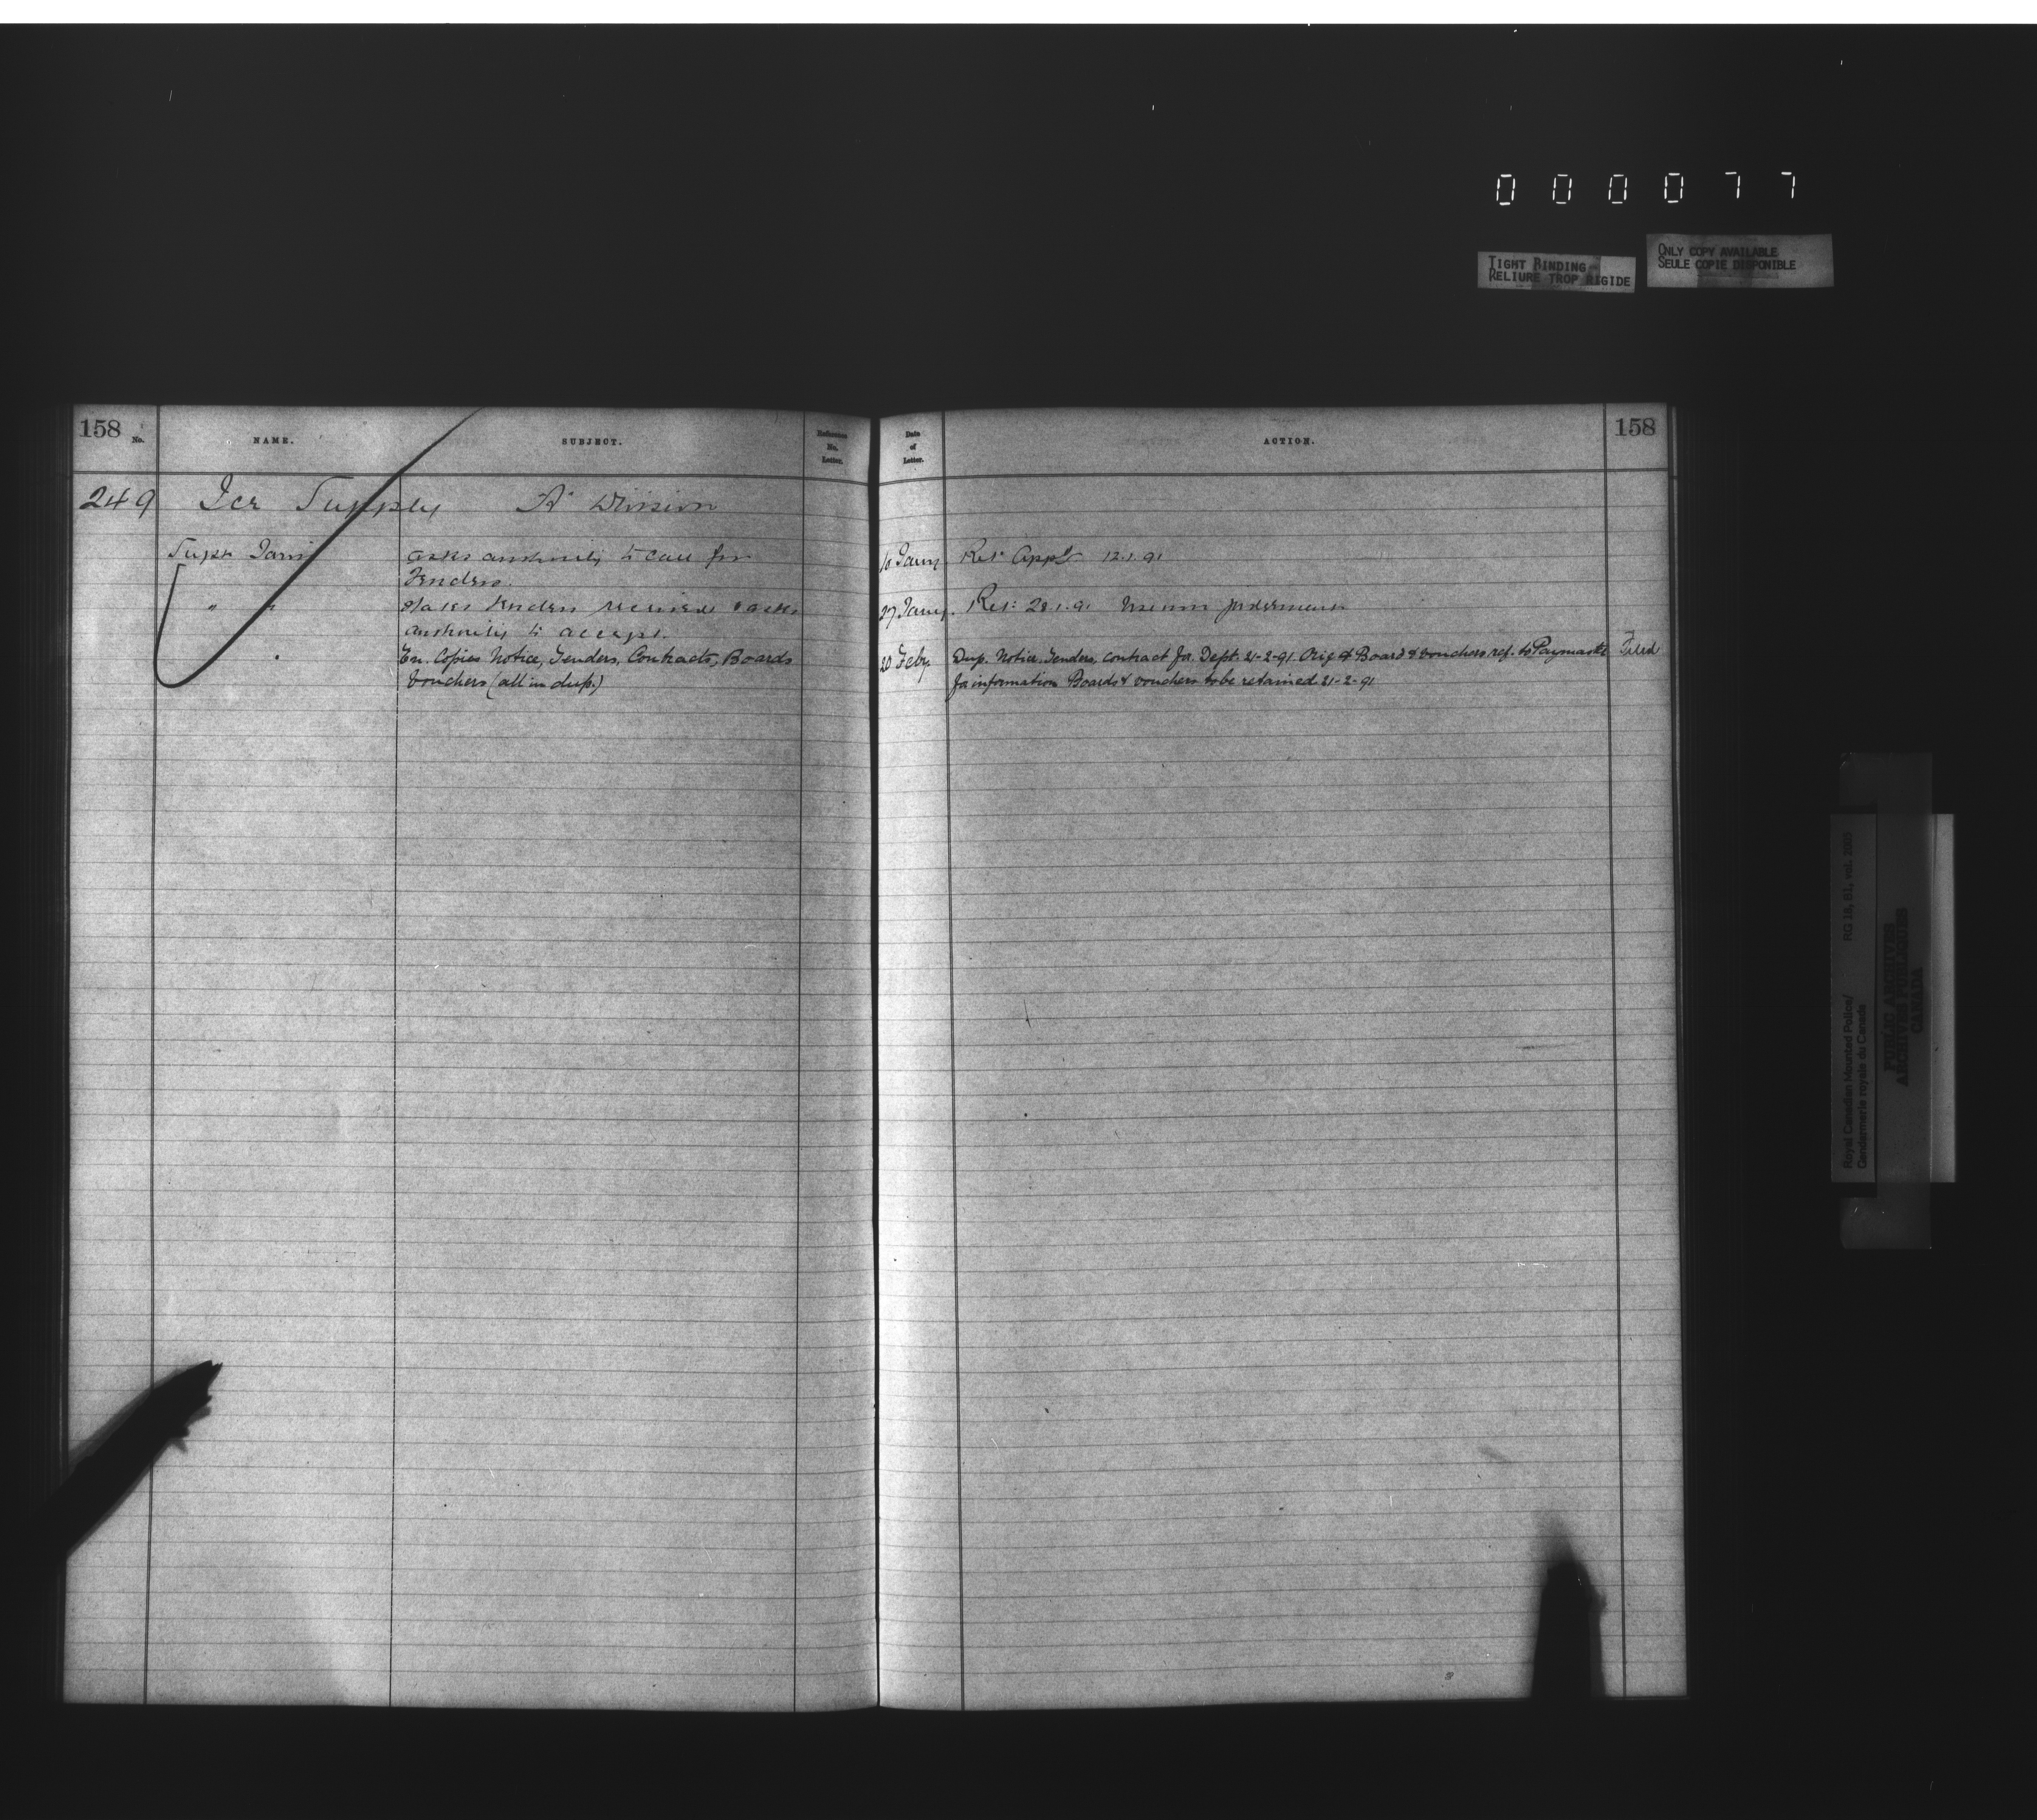 000077
TIGHT BINDING
RELIURE TROP RIGIDE
ONLY COPY AVAILABLE
SEULE COPIE DISPONIBLE
158 No.
NAME.
SUBJECT.
Reference
No.
Letter.
Date
of
Letter.
ACTION.
158
249 Ice Supply "A" Division
Supt Jarvis
asks authority to call for
Tenders.
10 Jany
Ret Appd 12.1.91
" "
states tenders received & asks
authority to accept.
27 Jany.
Ret: 28.1.91
En. Copies Notice, Tenders, Contracts, Boards
Vouchers (all in dup.)
20 Feby
Dup. Notice, Tenders, contract for Dept. 21-2-91 Orig of Board & vouchers ref. to Paymaster
for information Boards & vouchers to be retained 21-2-91
Filed
Royal Canadian Mounted Police/
Gendarmerie royale du Canada
RG 18, B1, vol.
PUBLIC ARCHIVES
ARCHIVES PUBLIQUES
CANADA